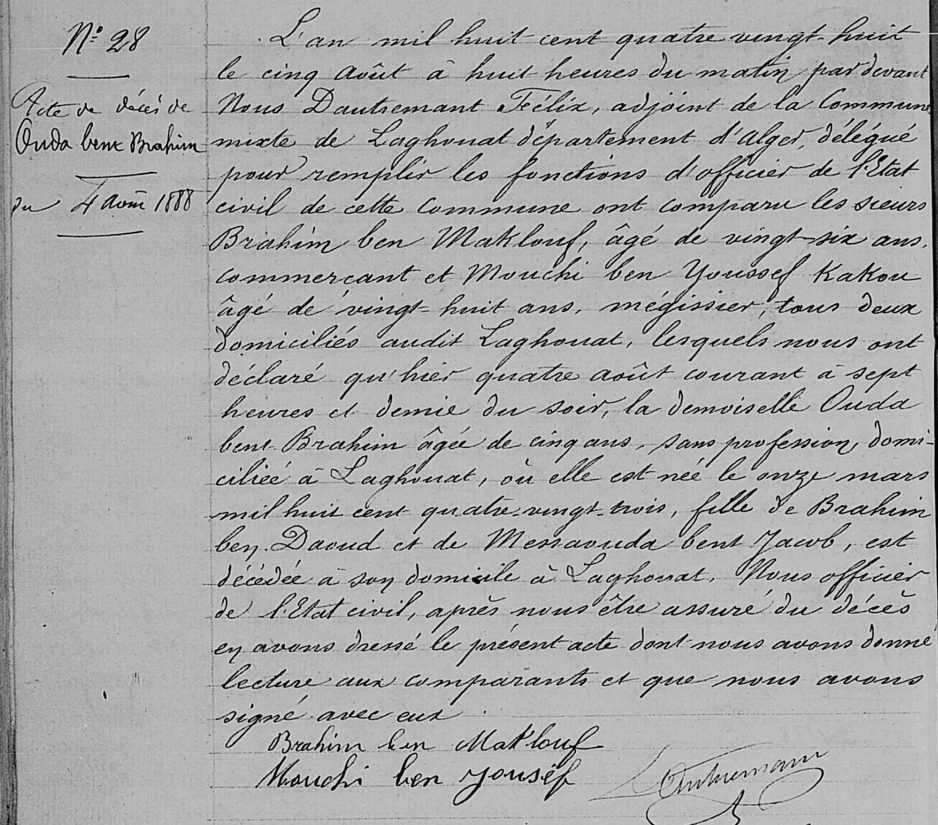 N° 28
Acte de décès de
Ouda bent Brahim
du 4 août 1888
L'an mil huit cent quatre vingt huit
le cinq août à huit heures du matin par devant
Nous Dautremant Félix, adjoint de la Commune
mixte de Laghouat département d'Alger, délégué
pour remplir les fonctions d'officier de l'Etat
civil de cette commune ont comparu les sieurs
Brahim ben Maklouf, âgé de vingt-six ans,
commerçant et Mouchi ben Youssef Kakou
âgé de vingt-huit ans, mégissier, tous deux
domiciliés audit Laghouat, lesquels nous ont
déclaré qu'hier quatre août courant à sept
heures et demie du soir, la demoiselle Ouda
bent Brahim âgée de cinq ans, sans profession, domi-
ciliée à Laghouat, où elle est née le onze mars
mil huit cent quatre-vingt-trois, fille de Brahim
ben Daoud et de Messaouda bent Jacob, est
décédée à son domicile à Laghouat. Nous officier
de l'Etat civil, après nous être assuré du décès
en avons dressé le présent acte dont nous avons donné
lecture aux comparants et que nous avons
signé avec eux.
Brahim ben Maklouf
Mouchi ben yousef